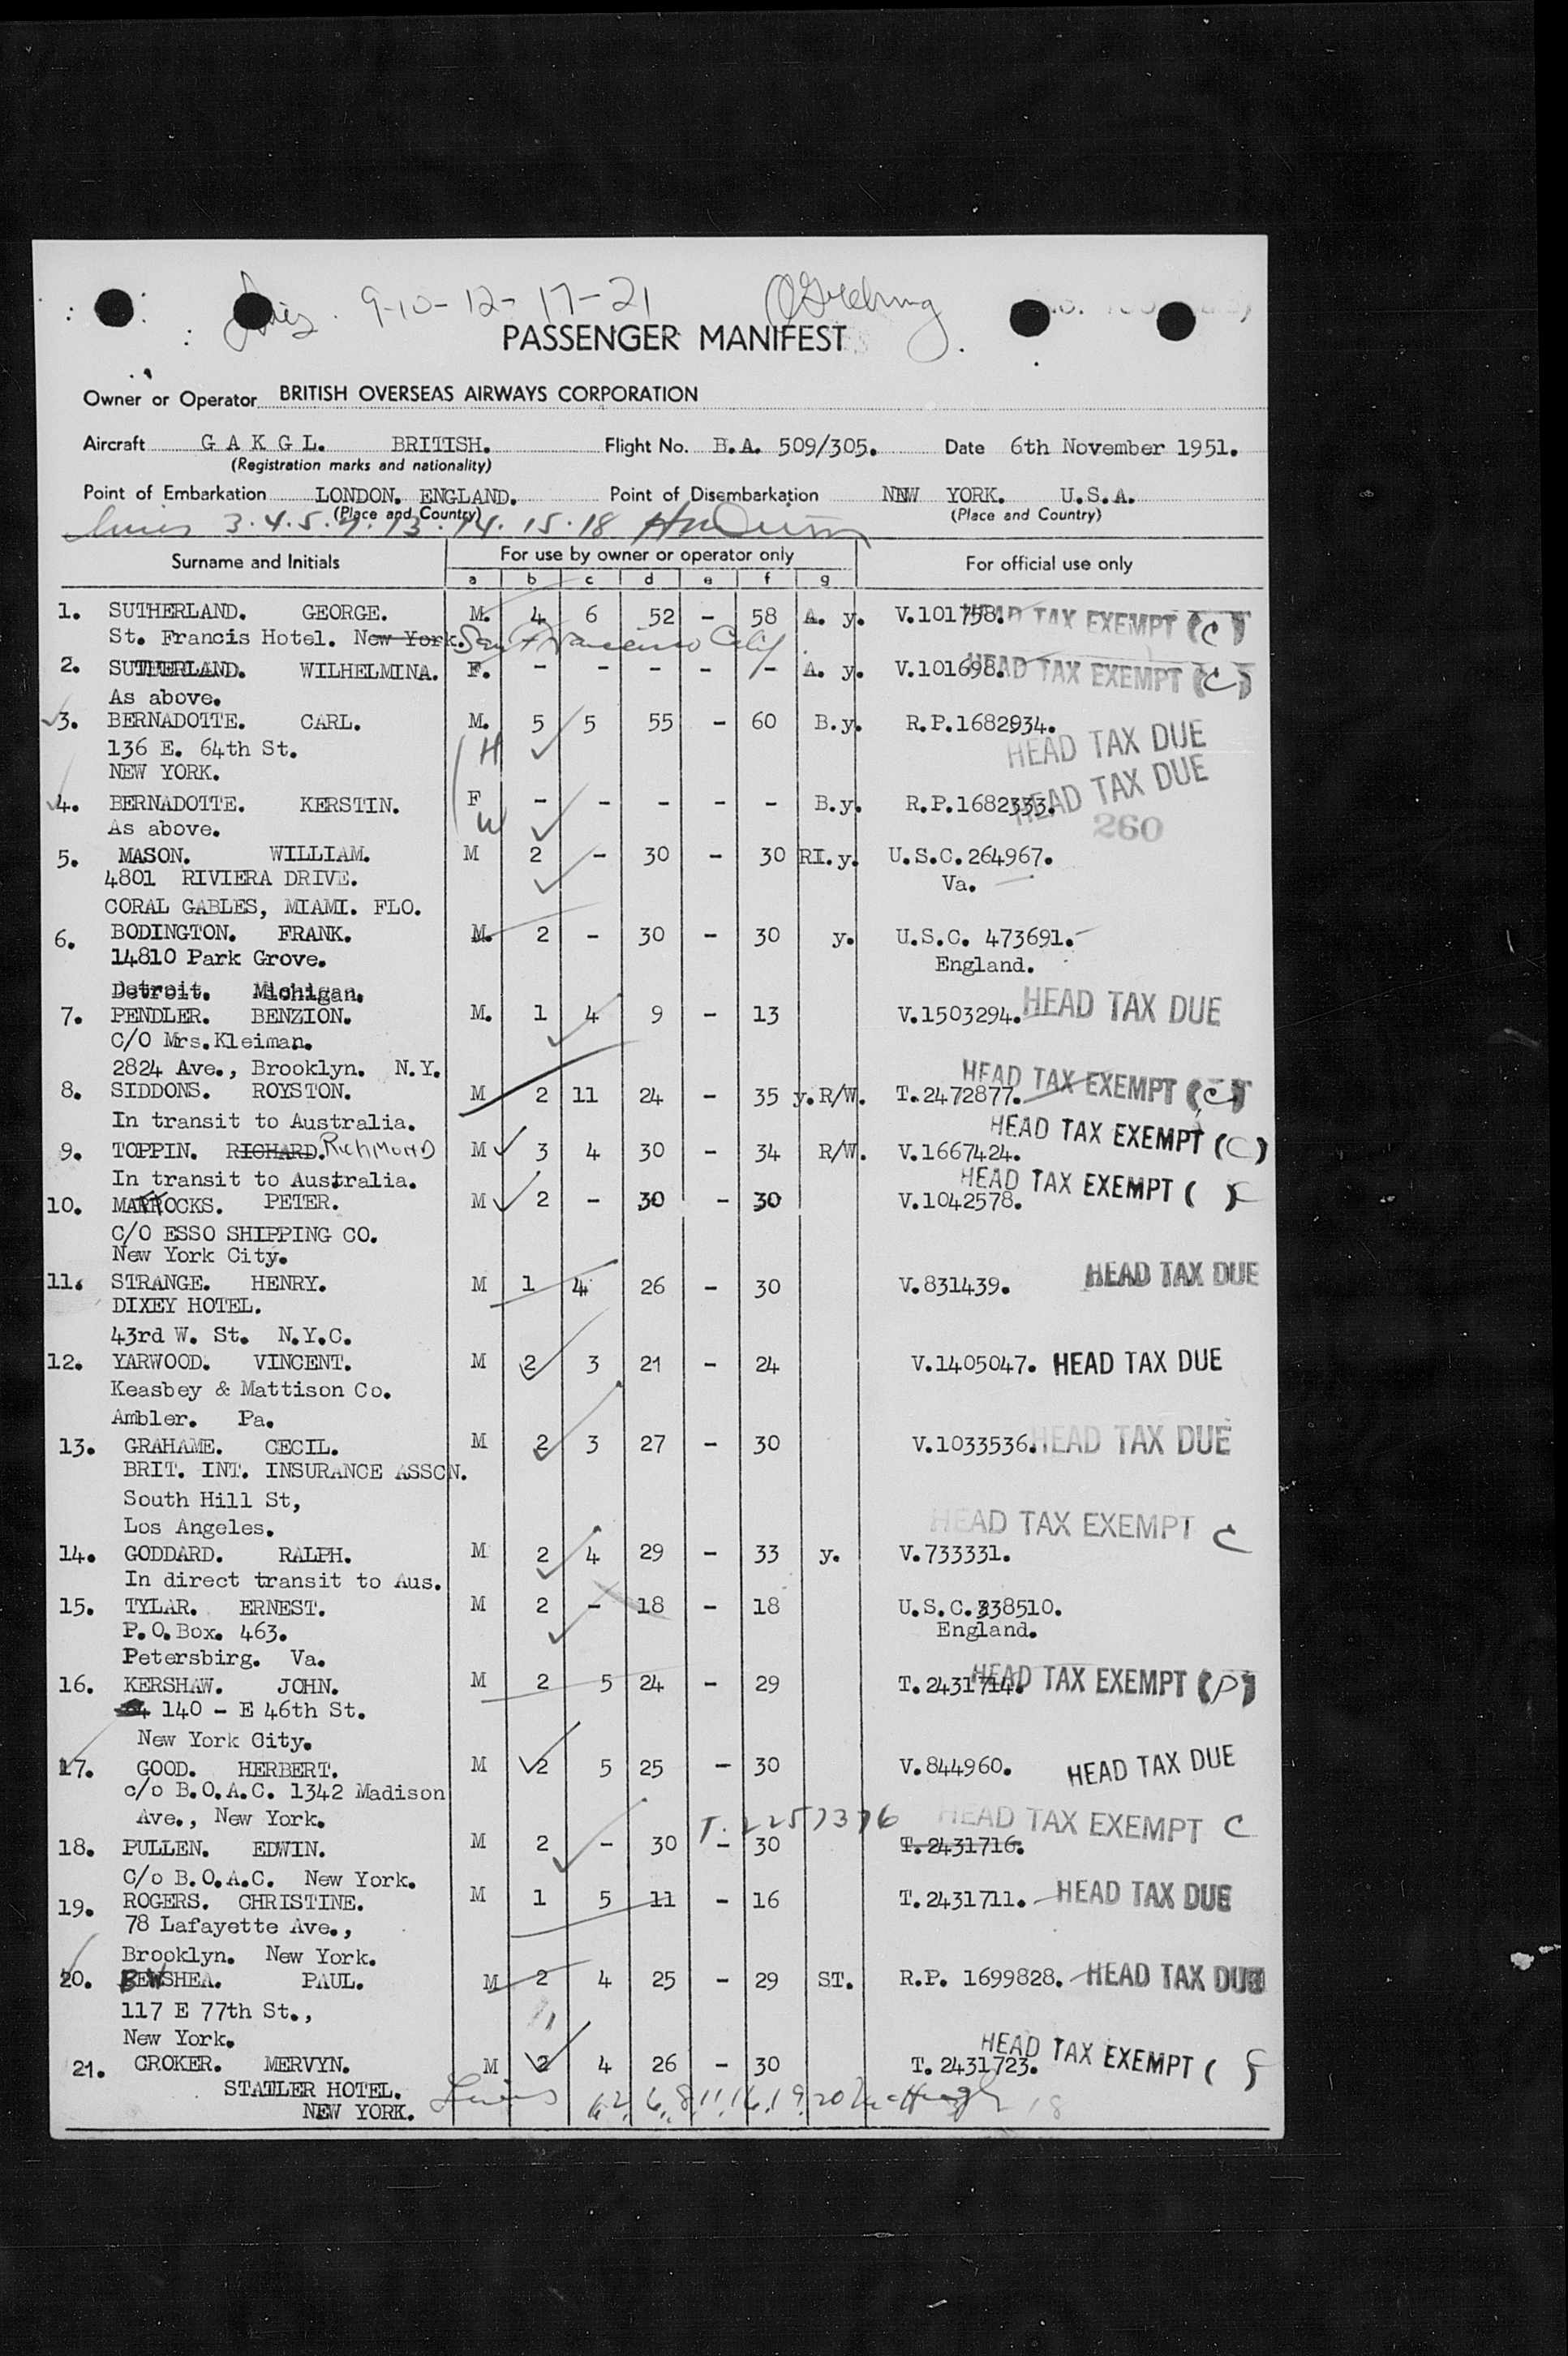 9-10-12-17-21
PASSENGER MANIFEST
Owner or Operator BRITISH OVERSEAS AIRWAYS CORPORATION
Aircraft G A K G L. BRITISH. Flight No. B.A. 509/305. Date 6th November 1951.
(Registration marks and nationality)
Point of Embarkation LONDON. ENGLAND. Point of Disembarkation NEW YORK. U.S.A.
(Place and Country) (Place and Country)
3.4.5.7.13.14.15.18
Surname and Initials For use by owner or operator only For official use only
a b c d e f g
1. SUTHERLAND. GEORGE. M. 4 6 52 - 58 A. y. V.101758. HEAD TAX EXEMPT (C)
St. Francis Hotel. New York. San Francisco Calif
2. SUTHERLAND. WILHELMINA. F. - - - - - A. y. V.101698. HEAD TAX EXEMPT (C)
As above.
3. BERNADOTTE. CARL. M. 5 5 55 - 60 B.y. R.P.1682934.
136 E. 64th St. H HEAD TAX DUE
NEW YORK.
4. BERNADOTTE. KERSTIN. F - - - - - B.y. R.P.1682333. HEAD TAX DUE
As above. W 260
5. MASON. WILLIAM. M 2 - 30 - 30 RI.y. U.S.C.264967.
4801 RIVIERA DRIVE. Va.
CORAL GABLES, MIAMI. FLO.
6. BODINGTON. FRANK. M. 2 - 30 - 30 y. U.S.C. 473691.
14810 Park Grove. England.
Detroit. Michigan.
7. PENDLER. BENZION. M. 1 4 9 - 13 V.1503294. HEAD TAX DUE
C/O Mrs.Kleiman.
2824 Ave., Brooklyn. N.Y.
8. SIDDONS. ROYSTON. M 2 11 24 - 35 y.R/W. T.2472877. HEAD TAX EXEMPT (C)
In transit to Australia.
9. TOPPIN. RICHARD. RICHMOND M 3 4 30 - 34 R/W. V.1667424. HEAD TAX EXEMPT (C)
In transit to Australia.
10. MARROCKS. PETER. M 2 - 30 - 30 V.1042578. HEAD TAX EXEMPT ( ) C
C/O ESSO SHIPPING CO.
New York City.
11. STRANGE. HENRY. M 1 4 26 - 30 V.831439. HEAD TAX DUE
DIXEY HOTEL.
43rd W. St. N.Y.C.
12. YARWOOD. VINCENT. M 2 3 21 - 24 V.1405047. HEAD TAX DUE
Keasbey & Mattison Co.
Ambler. Pa.
13. GRAHAME. CECIL. M 2 3 27 - 30 V.1033536. HEAD TAX DUE
BRIT. INT. INSURANCE ASSCN.
South Hill St,
Los Angeles. HEAD TAX EXEMPT C
14. GODDARD. RALPH. M 2 4 29 - 33 y. V.733331.
In direct transit to Aus.
15. TYLAR. ERNEST. M 2 - 18 - 18 U.S.C.338510.
P.O.Box. 463. England.
Petersbirg. Va.
16. KERSHAW. JOHN. M 2 5 24 - 29 T.2431714. HEAD TAX EXEMPT (P)
140 - E 46th St.
New York City.
17. GOOD. HERBERT. M 2 5 25 - 30 V.844960. HEAD TAX DUE
c/o B.O.A.C. 1342 Madison
Ave., New York. T.2257376 HEAD TAX EXEMPT C
18. PULLEN. EDWIN. M 2 - 30 - 30 T.2431716.
C/o B.O.A.C. New York.
19. ROGERS. CHRISTINE. M 1 5 11 - 16 T.2431711. HEAD TAX DUE
78 Lafayette Ave.,
Brooklyn. New York.
20. BEWSHEA. PAUL. M 2 4 25 - 29 ST. R.P. 1699828. HEAD TAX DUE
117 E 77th St.,
New York.
21. CROKER. MERVYN. M 2 4 26 - 30 T.2431723. HEAD TAX EXEMPT (
STATLER HOTEL.
NEW YORK.